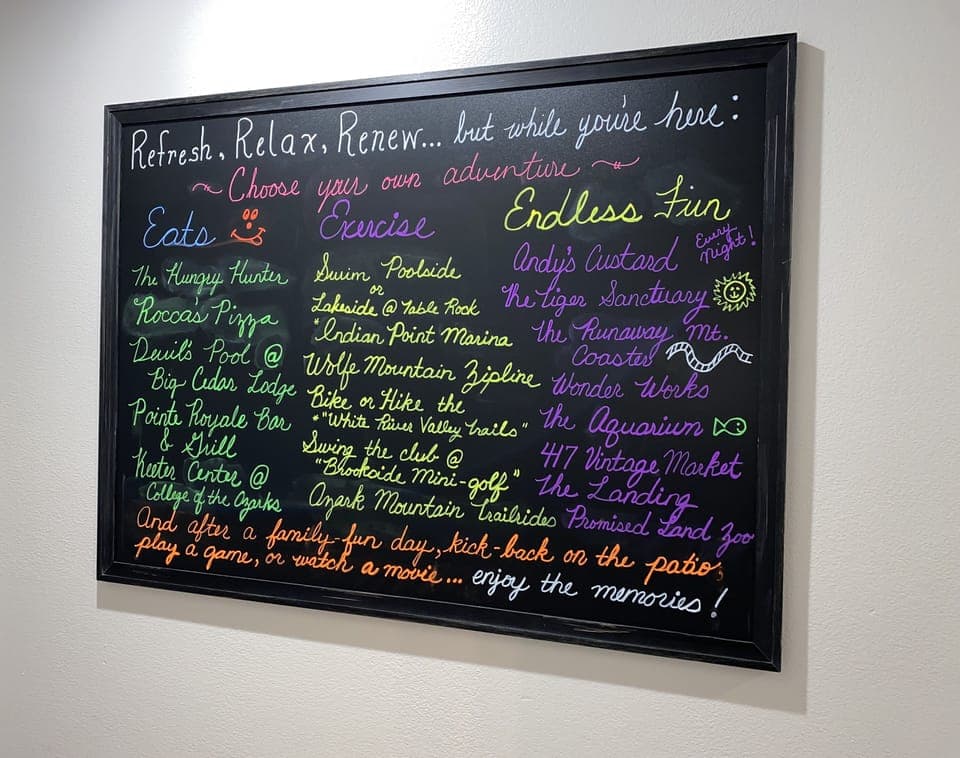 Refresh, Relax, Renew... but while you're here:
~ Choose your own adventure ~
Eats
The Hungry Hunter
Rocca's Pizza
Devil's Pool @
Big Cedar Lodge
Pointe Royale Bar
& Grill
Keeter Center @
College of the Ozarks
Exercise
Swim Poolside
or
Lakeside @ Table Rock
*Indian Point Marina
Wolfe Mountain Zipline
Bike or Hike the
*"White River Valley Trails"
Swing the club @
"Brookside Mini-golf"
Ozark Mountain Trailrides
Endless Fun
Andy's Custard Every Night!
The Tiger Sanctuary
The Runaway Mt.
Coaster
Wonder Works
The Aquarium
417 Vintage Market
The Landing
Promised Land Zoo
And after a family-fun day, kick-back on the patio,
play a game, or watch a movie... enjoy the memories!